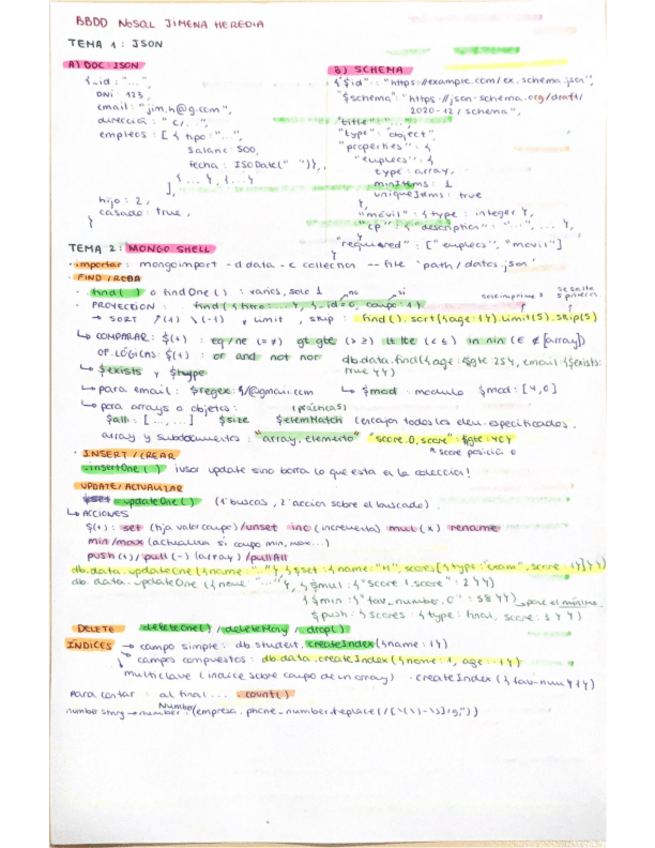 BBDD NoSQL JIMENA HEREDIA
TEMA 1: JSON
A) DOC. JSON
{_id: "...",
DNI: 123,
email: "jim.h@g.com",
dirección: "C/...",
empleos: [{tipo: "...",
salario: 500,
fecha: ISODate(" ")},
{...}, {...}
],
hijo: 2,
casado: true,
}
B) SCHEMA
{"$id": "https://example.com/ex.schema.json",
"$schema": "https://json-schema.org/draft/
2020-12/schema",
"title": "..."
"type": "object",
"properties": {
"empleos": {
type: array,
minItems: 1
uniqueItems: true
},
"móvil": {type: integer},
"cp": {"description": "...", ... },
}
"required": ["empleos", "móvil"]
TEMA 2: MONGO SHELL
· importar: mongoimport -d data -c collection --file "path/datos.json"
· FIND/READ
· find() o findOne(): varios, solo 1
· PROYECCIÓN: find({filtro:...}, {_id=0, campo:1})
no
si
→ SORT ↑(1) ↓(-1), limit, skip: find().sort({age:1}).limit(5).skip(5)
↳ COMPARAR: $(+): eq/ne (= ≠) gt gte (> ≥) lt lte (< ≤) in nin (∈ ∉ [array])
OP. LÓGICAS: $(+): or and not nor
db.data.find({age: $gte 25}, email: {$exists:
true}})
↳ $exists y $type
↳ para email: $regex: /@gmail.com
↳ $mod: modulo $mod: [4,0]
↳ para arrays o objetos:
(práctica 5)
$all: [..., ...] $size $elemMatch (encaja todos los elem. especificados.
array y subdocumentos: "array.elemento" "score.0.score": $gte: 40}
↖ score posición 0
· INSERT/CREAR
· insertOne() ¡usar update sino borra lo que esta en la colección!
UPDATE/ACTUALIZAR
$set updateOne() (1º buscas, 2º acción sobre el buscado)
↳ ACCIONES
$(+): set (fija valor campo)/unset inc (incrementa) mul (x) rename
min/max (actualiza si campo min, max...)
push (+)/ pull (-) (array) /pullAll
db.data.updateOne({name: "..."}, {$set: {name: "H", scores[{type: "exam", score: 1}]}})
db.data.updateOne({name: "..."}, {$mul: {"score.1.score": 2}})
{$min: {"fav_number.0": 58}} ↳ pone el mínimo
$push: {scores: {type: final, score: 5}}}
DELETE deleteOne() / deleteMany / drop()
ÍNDICES → campo simple: db.student.createIndex({name:1})
↘ campos compuestos: db.data.createIndex({name:1, age:-1})
multiclave (índice sobre campo de un array) .createIndex({fav-num:1})
Para contar: al final... .count()
number string → number: Number(empresa.phone_number.replace(/[\(\)-\s]/g,""))